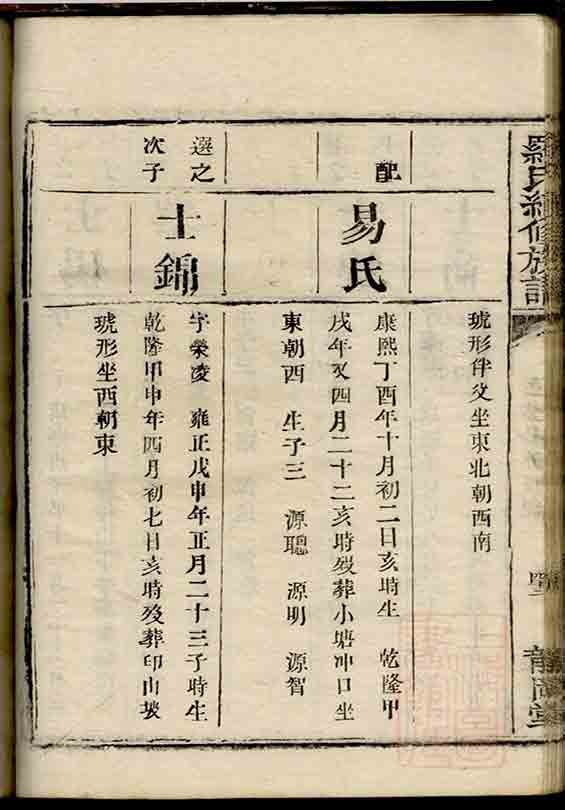 琥形伴父坐東北朝西南
配
易氏
康熙丁酉年十月初二日亥時生 乾隆甲
戌年又四月二十二亥時歿葬小塘冲口坐
東朝西 生子三 源聰 源明 源智
選之
次子
士錦
字榮凌 雍正戊申年正月二十三子時生
乾隆甲申年四月初七日亥時歿葬印山坡
琥形坐西朝東